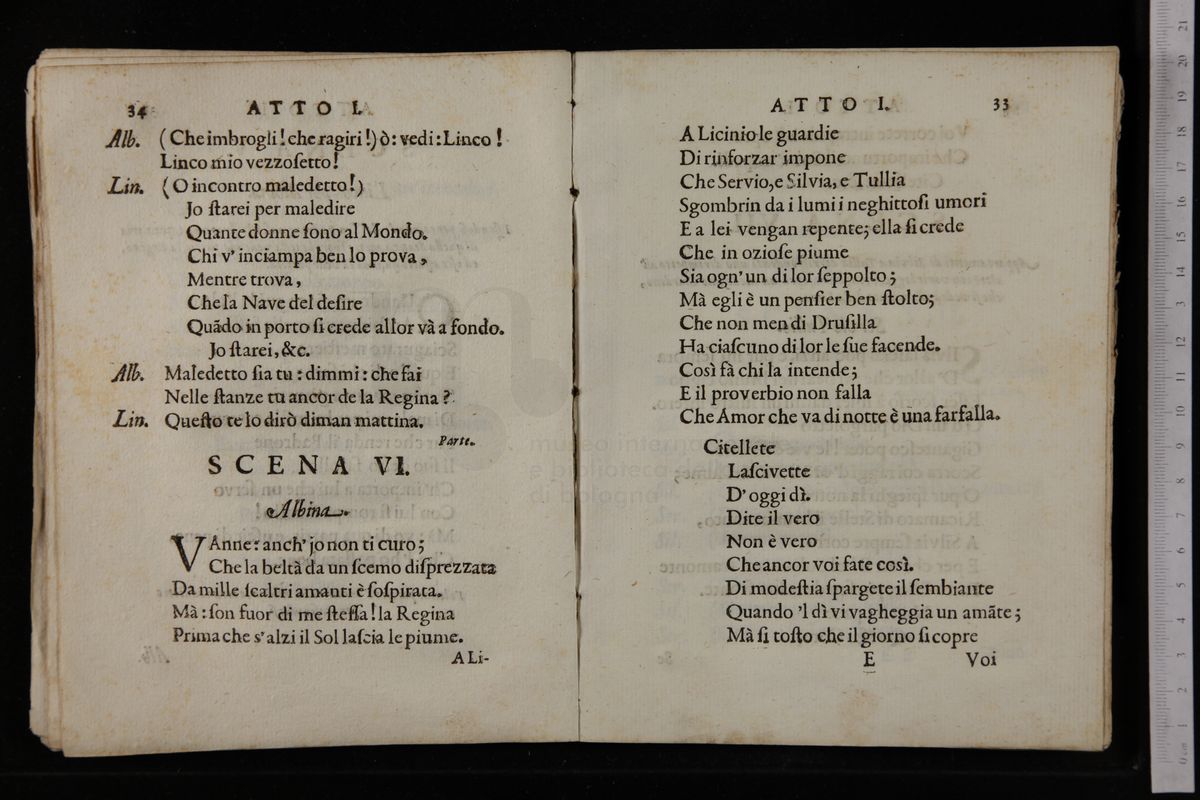 34 ATTO I.
Alb. (Che imbrogli! che ragiri!) ò: vedi: Linco!
Linco mio vezzoſetto!
Lin. (O incontro maledetto!)
Jo ſtarei per maledire
Quante donne ſono al Mondo.
Chi v' inciampa ben lo prova,
Mentre trova,
Che la Nave del deſire
Quãdo in porto ſi crede allor và a fondo.
Jo ſtarei, &c.
Alb. Maledetto ſia tu: dimmi: che fai
Nelle ſtanze tu ancor de la Regina?
Lin. Queſto te lo dirò diman mattina.
Parte.
SCENA VI.
Albina.
VAnne: anch' jo non ti curo;
Che la beltà da un ſcemo diſprezzata
Da mille ſcaltri amanti è ſoſpirata.
Mà: ſon fuor di me ſteſſa! la Regina
Prima che s' alzi il Sol laſcia le piume.
A Li-
ATTO I. 33
A Licinio le guardie
Di rinforzar impone
Che Servio, e Silvia, e Tullia
Sgombrin da i lumi i neghittoſi umori
E a lei vengan repente; ella ſi crede
Che in ozioſe piume
Sia ogn' un di lor ſeppolto;
Mà egli è un penſier ben ſtolto;
Che non men di Druſilla
Ha ciaſcuno di lor le ſue facende.
Così fà chi la intende;
E il proverbio non falla
Che Amor che va di notte è una farfalla.
Citellete
Laſcivette
D' oggi dì.
Dite il vero
Non è vero
Che ancor voi fate così.
Di modeſtia ſpargete il ſembiante
Quando 'l dì vi vagheggia un amãte;
Mà ſi toſto che il giorno ſi copre
E Voi
museo internazionale
e biblioteca
di bologna